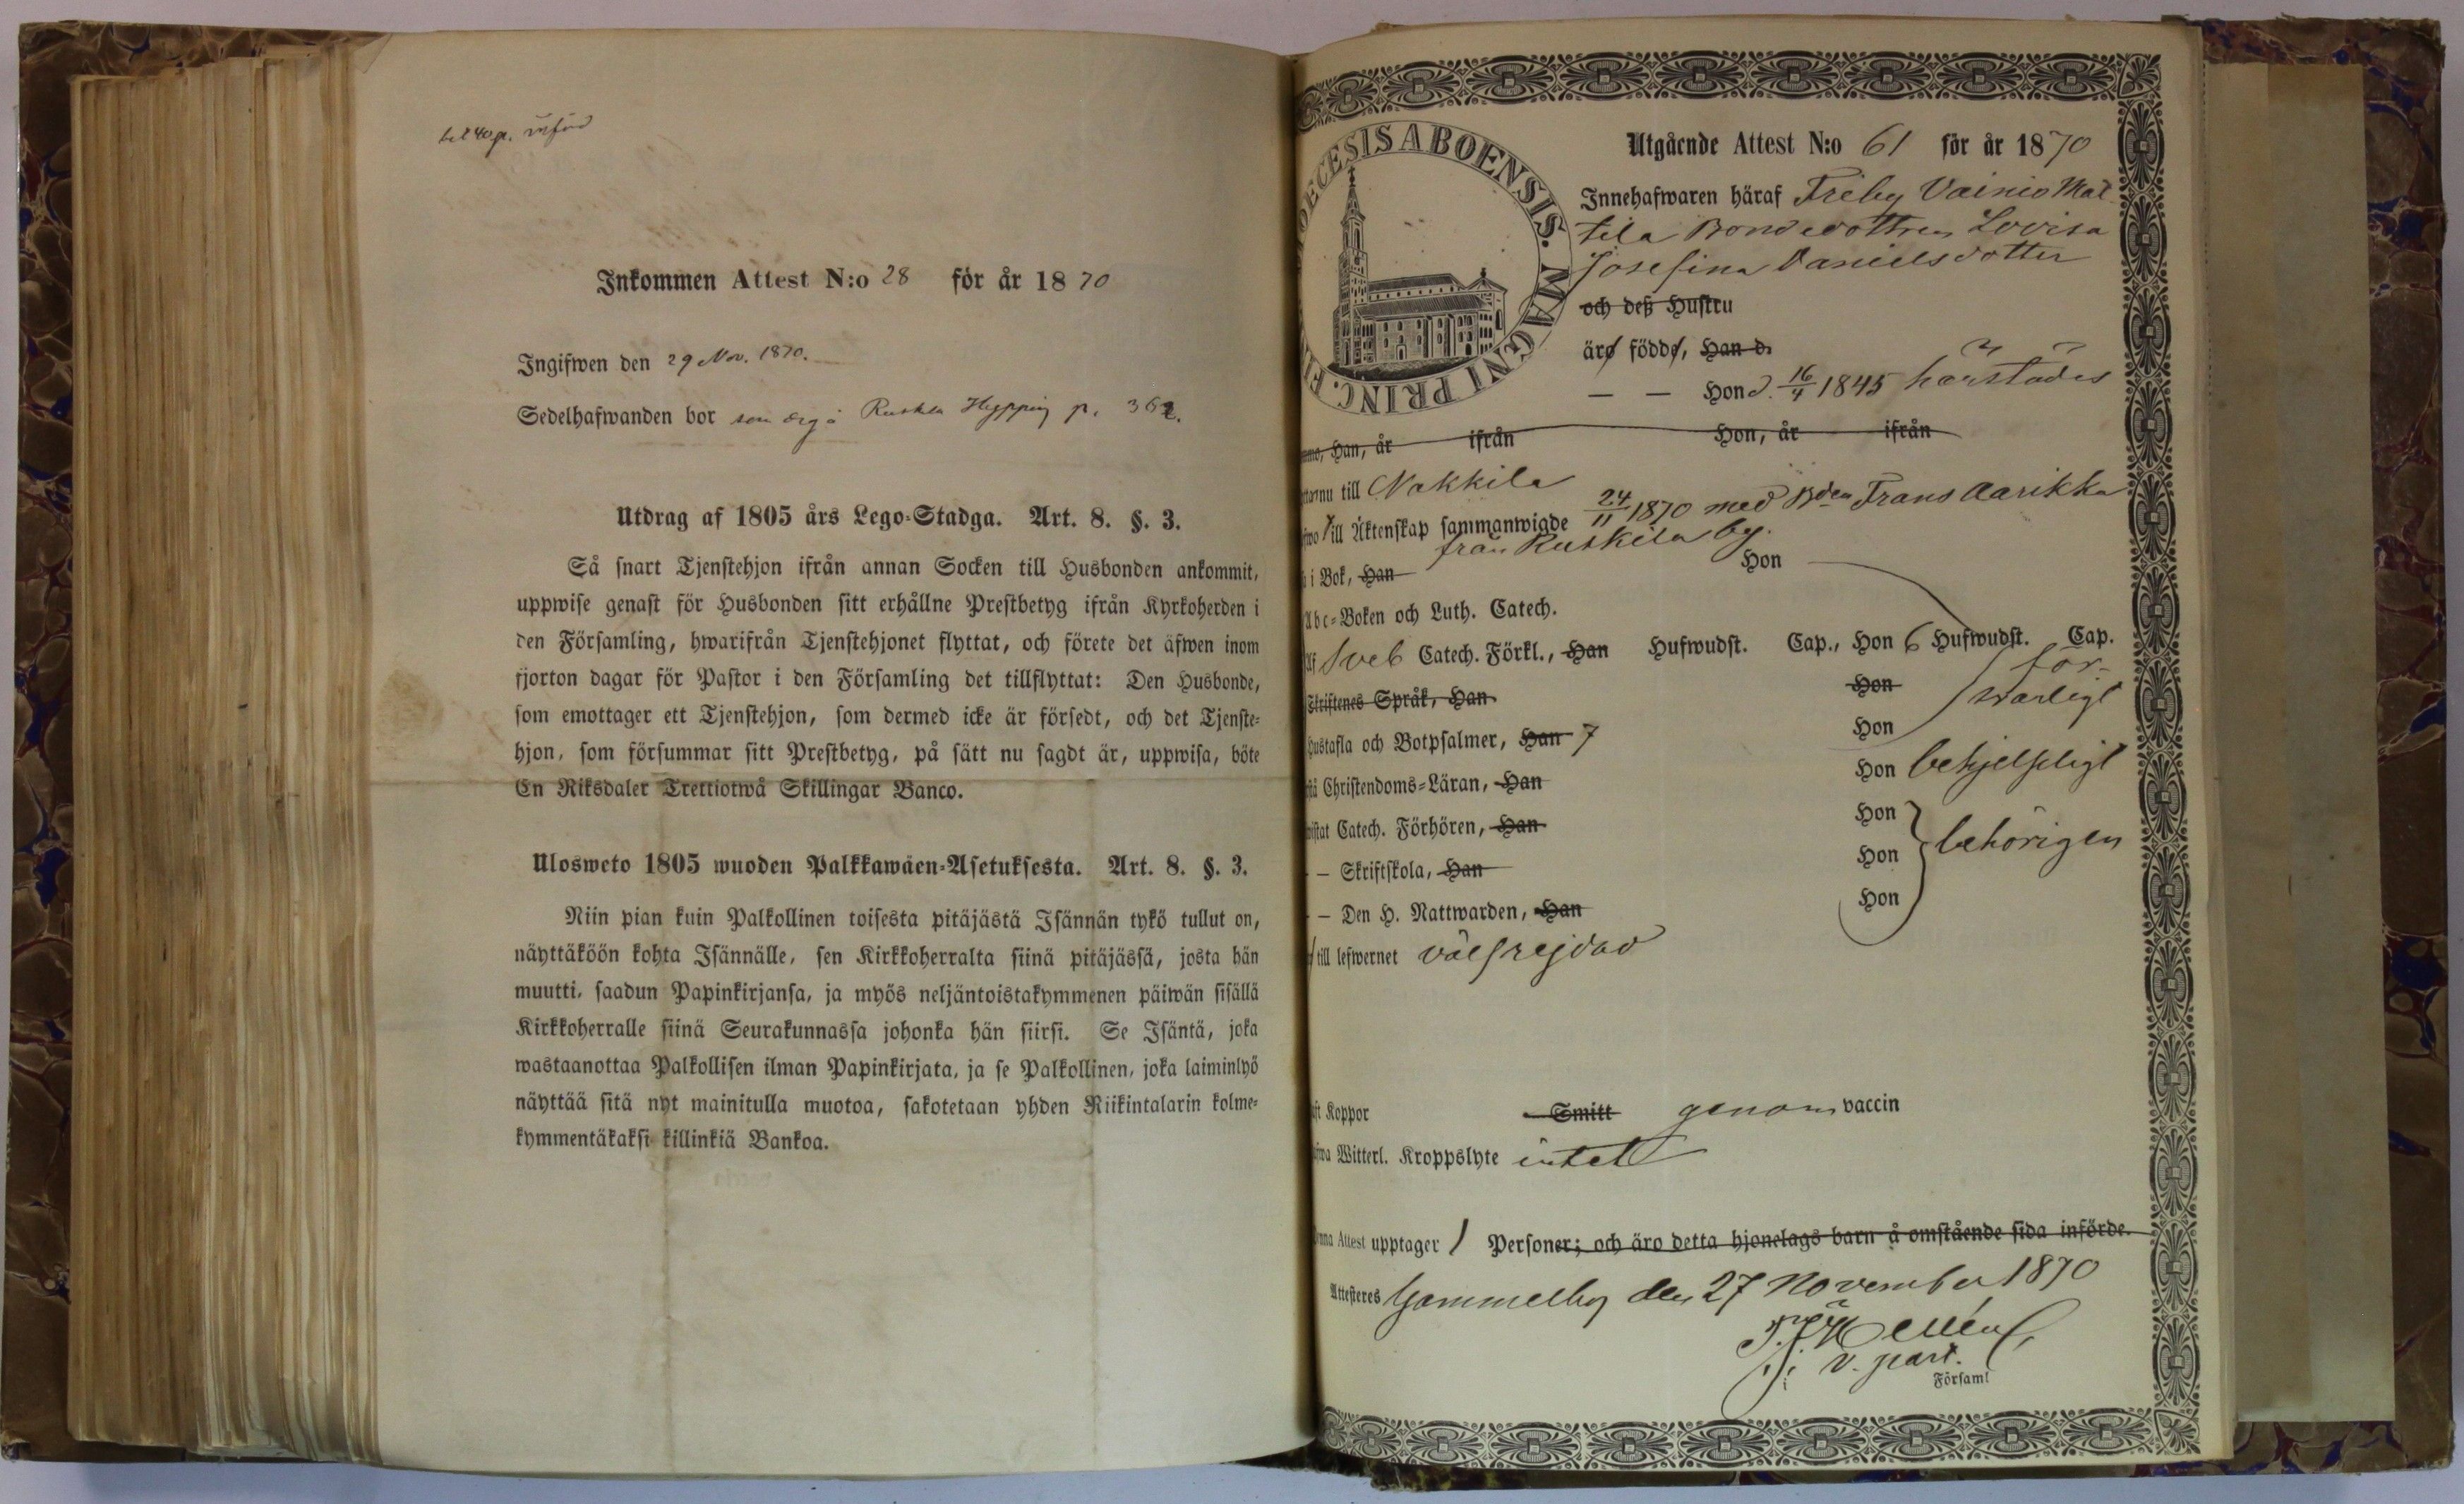 införd
Inkommen Attest N:o 28 för år 1870
Ingifwen den 29 Nov. 1870.
Sedelhafwanden bor som Ruskila Hypping p. 362.
Utdrag af 1805 års Lego-Stadga. Art. 8. §. 3.
Så snart Tjenstehjon ifrån annan Socken till Husbonden ankommit,
uppwise genast för Husbonden sitt erhållne Prestbetyg ifrån Kyrkoherden i
den Församling, hwarifrån Tjenstehjonet flyttat, och förete det äfwen inom
fjorton dagar för Pastor i den Församling det tillflyttat: Den Husbonde,
som emottager ett Tjenstehjon, som dermed icke är försedt, och det Tjenste-
hjon, som försummar sitt Prestbetyg, på sätt nu sagdt är, uppwisa, böte
En Riksdaler Trettiotwå Skillingar Banco.
Ulosweto 1805 wuoden Palkkawäen-Asetuksesta. Art. 8. §. 3.
Niin pian kuin Palkollinen toisesta pitäjästä Isännän tykö tullut on,
näyttäköön kohta Isännälle, sen Kirkkoherralta siinä pitäjässä, josta hän
muutti, saadun Papinkirjansa, ja myös neljäntoistakymmenen päiwän sisällä
Kirkkoherralle siinä Seurakunnassa johonka hän siirsi. Se Isäntä, joka
wastaanottaa Palkollisen ilman Papinkirjata, ja se Palkollinen, joka laiminlyö
näyttää sitä nyt mainitulla muotoa, sakotetaan yhden Riikintalarin kolme-
kymmentäkaksi killinkiä Bankoa.
OECESIS ABOENSIS. MAGNI PRINC. FI
Utgående Attest N:o 61 för år 1870
Innehafwaren häraf Friby Vainio Mat
tila Bondedottren Lovisa
Josefina Danielsdotter
och deß Hustru
äro födde, Han d.
— — Hon d. 16/4 1845 härstädes
Han, år ifrån Hon, år ifrån
nu till Nakkila
till Äktenskap sammanwigde 24/11 1870 med Bden Frans Aarikka
från Ruskila by.
i Bok, Han Hon
Abc-Boken och Luth. Catech.
Af Sveb Catech. Förkl., Han Hufwudst. Cap., Hon 6 Hufwudst. Cap.
Skriftenes Språk, Han Hon för-
svarligt
Hustafla och Botpsalmer, Han 7 Hon
Christendoms-Läran, Han Hon behjelpligt
Catech. Förhören, Han Hon
— Skriftskola, Han Hon behörigen
— Den H. Nattwarden, Han Hon
till lefwernet välfrejdad
Koppor Smitt genom vaccin
Witterl. Kroppslyte intet
Attest upptager 1 Personer; och äro detta hjonelags barn å omstående sida införde.
Attesteres Gammelby den 27 November 1870
v. past.
Församl